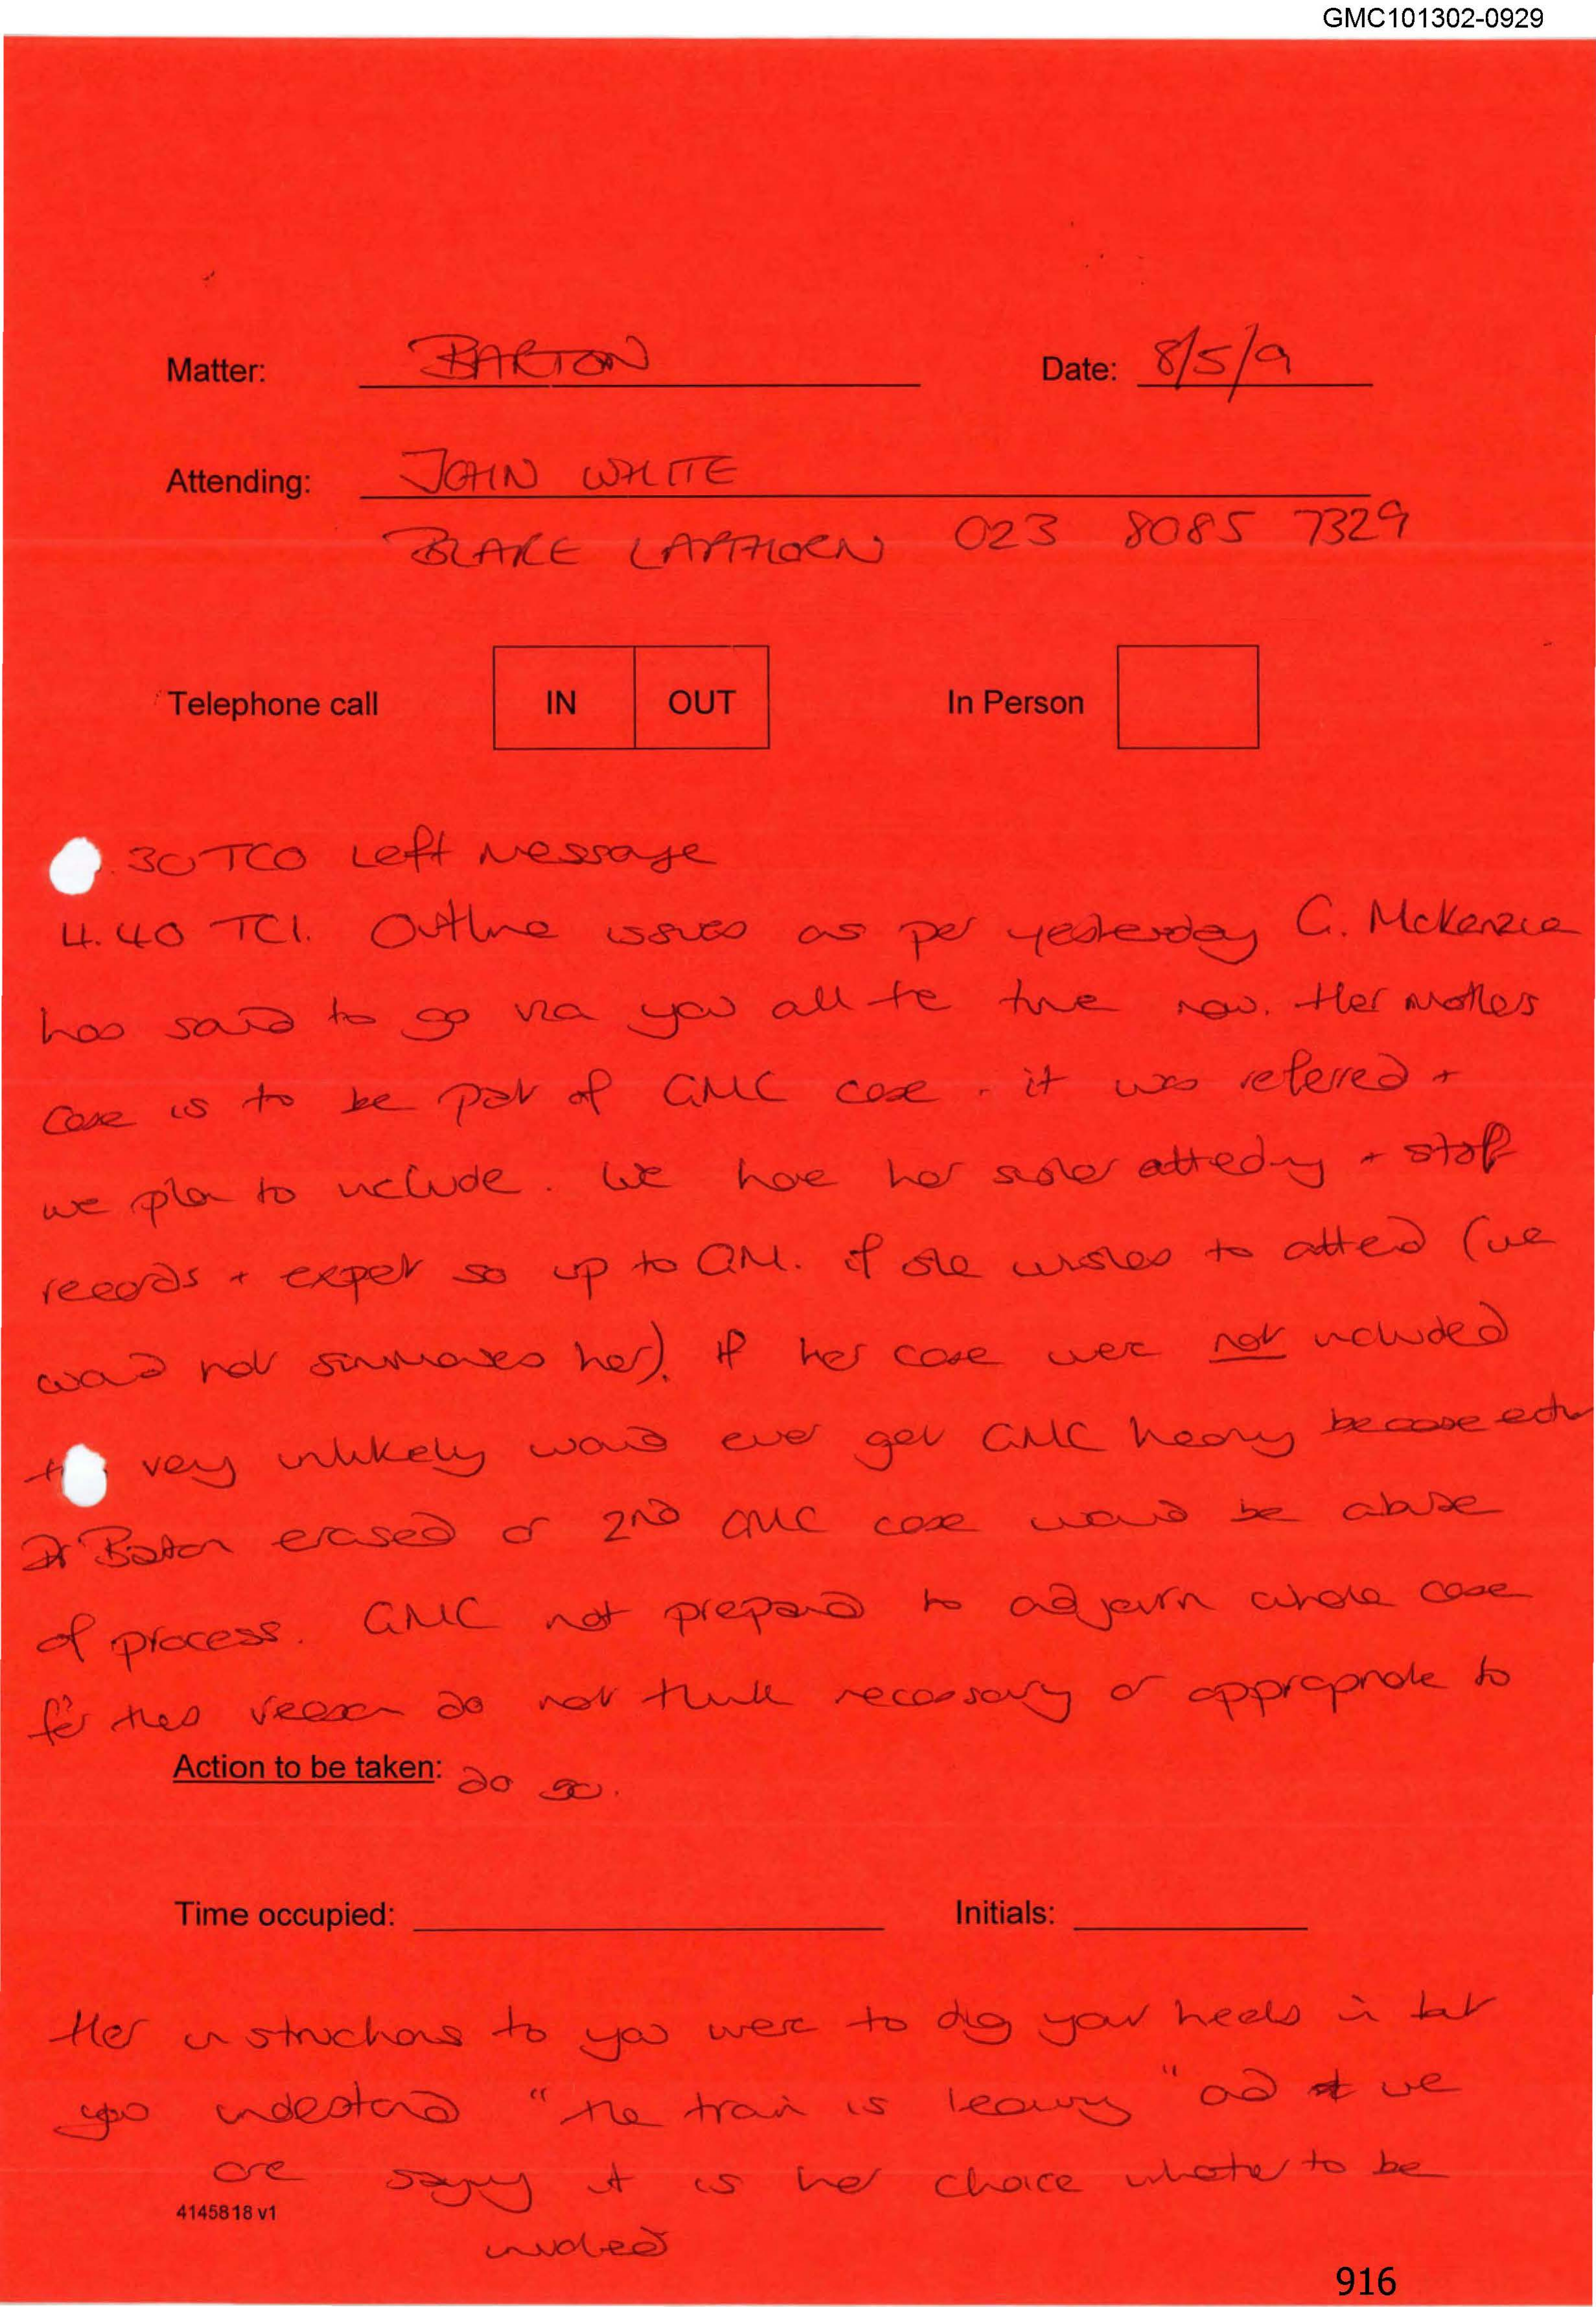 GMC101302-0929
Matter: BARTON Date: 8/5/9
Attending: JOHN WHITE
BLAKE LAPTHORN 023 8085 7329
Telephone call IN OUT In Person
.30 TCO Left message
4.40 TCI. Outline issues as per yesterday G. McKenzie
has said to go via you all the time now. Her mothers
case is to be part of GMC case. it was referred +
we plan to include. We have her sister attending + staff
records + expert so up to GM. if she wishes to attend (we
would not summons her). If her case were not included
very unlikely would ever get GMC hearing because
Dr Barton erased or 2nd GMC case would be abuse
of process. GMC not prepared to adjourn whole case
for this reason do not think necessary or appropriate to
Action to be taken: do so.
Time occupied: Initials:
Her instructions to you were to dig your heels in but
you understand "the train is leaving" and we
are saying it is her choice whether to be
4145818 v1
involved
916